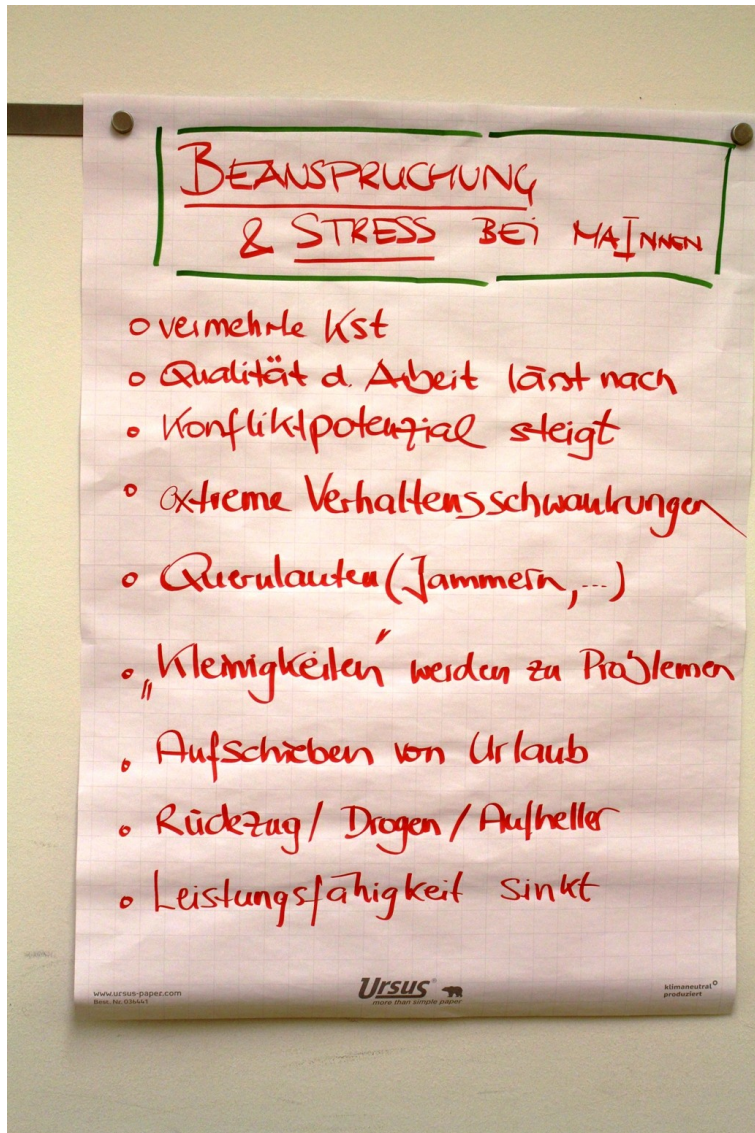 BEANSPRUCHUNG
& STRESS BEI MAINNEN
vermehrte Kst
Qualität d. Arbeit lässt nach
Konfliktpotenzial steigt
extreme Verhaltensschwankungen
Querulanten (Jammern, ...)
„Kleinigkeiten" werden zu Problemen
Aufschieben von Urlaub
Rückzug / Drogen / Aufheller
Leistungsfähigkeit sinkt
www.ursus-paper.com
Best. Nr. 036441
Ursus®
more than simple paper
klimaneutral
produziert